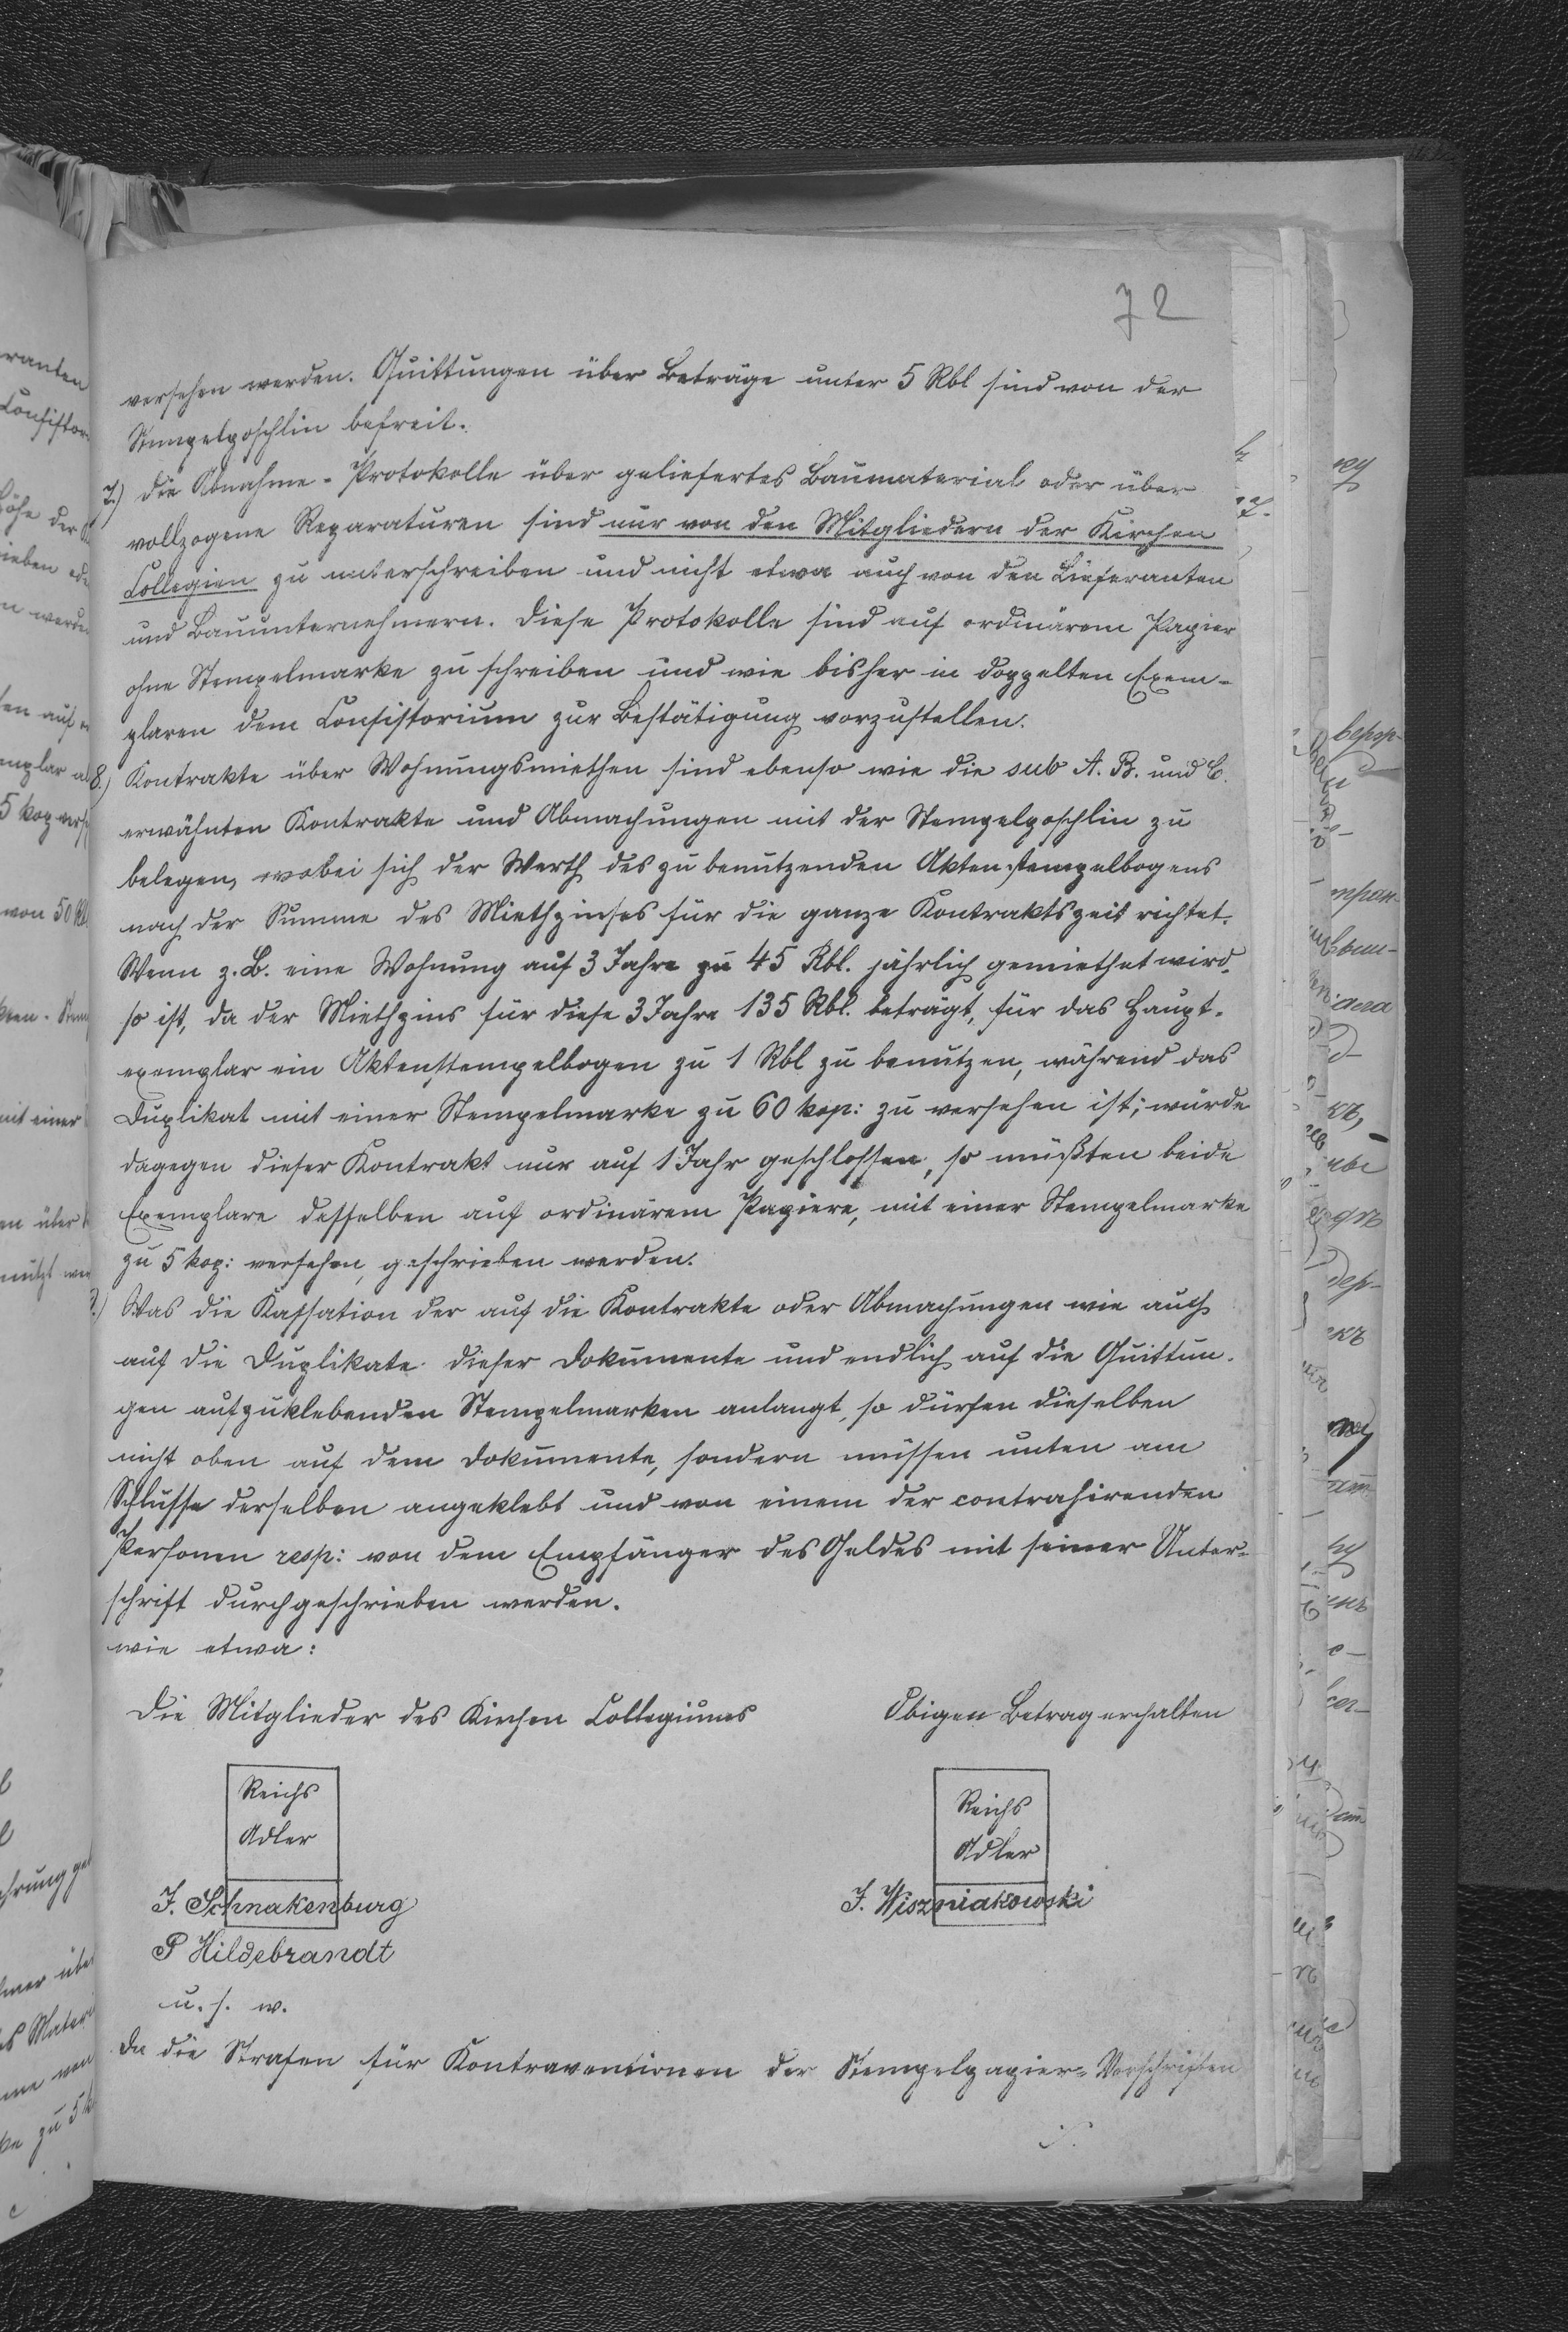 72
versehen werden. Quittungen über Beträge unter 5 Rbl sind von der
Stempelposchlin befreit.
7.) Die Abnahme-Protokolle über geliefertes Baumaterial oder über
vollzogene Reparaturen sind nur von den Mitgliedern der Kirchen
Collegien zu unterschreiben und nicht etwa auch von den Lieferanten
und Bauunternehmern. Diese Protokolle sind auf ordinärem Papier
ohne Stempelmarke zu schreiben und wie bisher in doppelten Exem-
plaren dem Consistorium zur Bestätigung vorzustellen.
8.) Kontrakte über Wohnungsmiethen sind ebenso wie die sub A. B. und C.
erwähnten Kontrakte und Abmachungen mit der Stempelposchlin zu
belegen, wobei sich der Werth des zu benutzenden Aktenstempelbogens
nach der Summe des Miethzinses für die ganze Kontraktszeit richtet.
Wenn z. B. eine Wohnung auf 3 Jahre zu 45 Rbl. jährlich gemiethet wird,
so ist, da der Miethzins für diese 3 Jahre 135 Rbl. beträgt, für das Haupt-
exemplar ein Aktenstempelbogen zu 1 Rbl zu benutzen, während das
Duplikat mit einer Stempelmarke zu 60 kop: zu versehen ist; würde
dagegen dieser Kontrakt nur auf 1 Jahr geschlossen, so müßten beide
Exemplare desselben auf ordinärem Papiere, mit einer Stempelmarke
zu 5 kop: versehen, geschrieben werden.
9.) Was die Kassation der auf die Kontrakte oder Abmachungen wie auch
auf die Duplikate dieser Dokumente und endlich auf die Quittun-
gen aufzuklebenden Stempelmarken anlangt, so dürfen dieselben
nicht oben auf dem Dokumente, sondern müssen unten am
Schlusse derselben angeklebt und von einem der contrahirenden
Personen resp: von dem Empfänger des Geldes mit seiner Unter-
schrift durchgeschrieben werden.
wie etwa:
Die Mitglieder des Kirchen Collegiums
Obigen Betrag erhalten
Reichs
Adler
Reichs
Adler
J. Schnakenburg
J. Wiszniakowski
P Hildebrandt
u. s. w.
Da die Strafen für Kontraventionen der Stempelpapier-Vorschriften